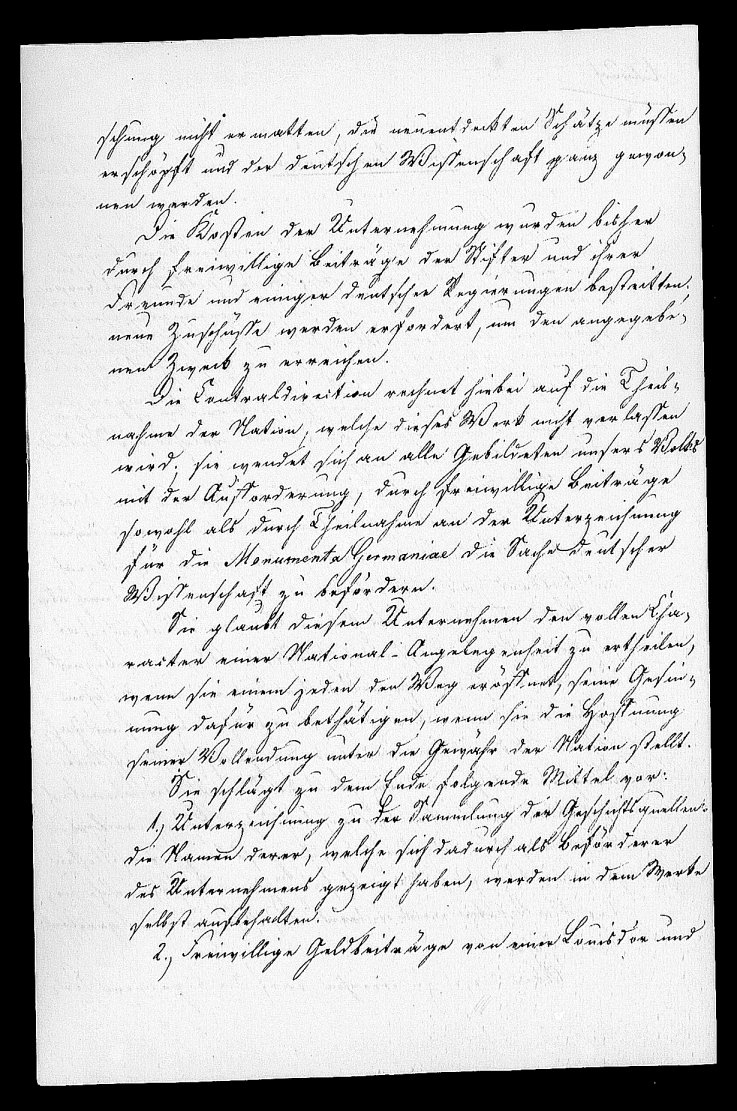 schung nicht ermatten, die neuentdeckten Schätze müssen
erschöpft und der deutschen Wissenschaft ganz gewon-
nen werden.
Die Kosten der Unternehmung wurden bisher
durch freiwillige Beiträge der Stifter und ihrer
Freunde und einiger deutscher Regierungen bestritten,
neue Zuschüsse werden erfordert, um den angegebe-
nen Zweck zu erreichen.
Die Centraldirection rechnet hiebei auf die Theil-
nahme der Nation, welche dieses Werk nicht verlassen
wird; sie wendet sich an alle Gebildeten unsers Volks
mit der Aufforderung, durch freiwillige Beiträge
sowohl als durch Theilnahme an der Unterzeichnung
für die Monumenta Germaniae die Sache deutscher
Wissenschaft zu befördern.
Sie glaubt diesem Unternehmen den vollen Cha-
racter einer National-Angelegenheit zu ertheilen,
wenn sie einem jeden den Weg eröffnet, seine Gesin-
nung dafür zu bethätigen, wenn sie die Hoffnung
seiner Vollendung unter die Gewähr der Nation stellt.
Sie schlägt zu dem Ende folgende Mittel vor:
1., Unterzeichnung zu der Sammlung der Geschichtsquellen.
die Namen derer, welche sich dadurch als Beförderer
des Unternehmens gezeigt haben, werden in dem Werke
selbst aufbehalten.
2., Freiwillige Geldbeiträge von einer Louisdor und